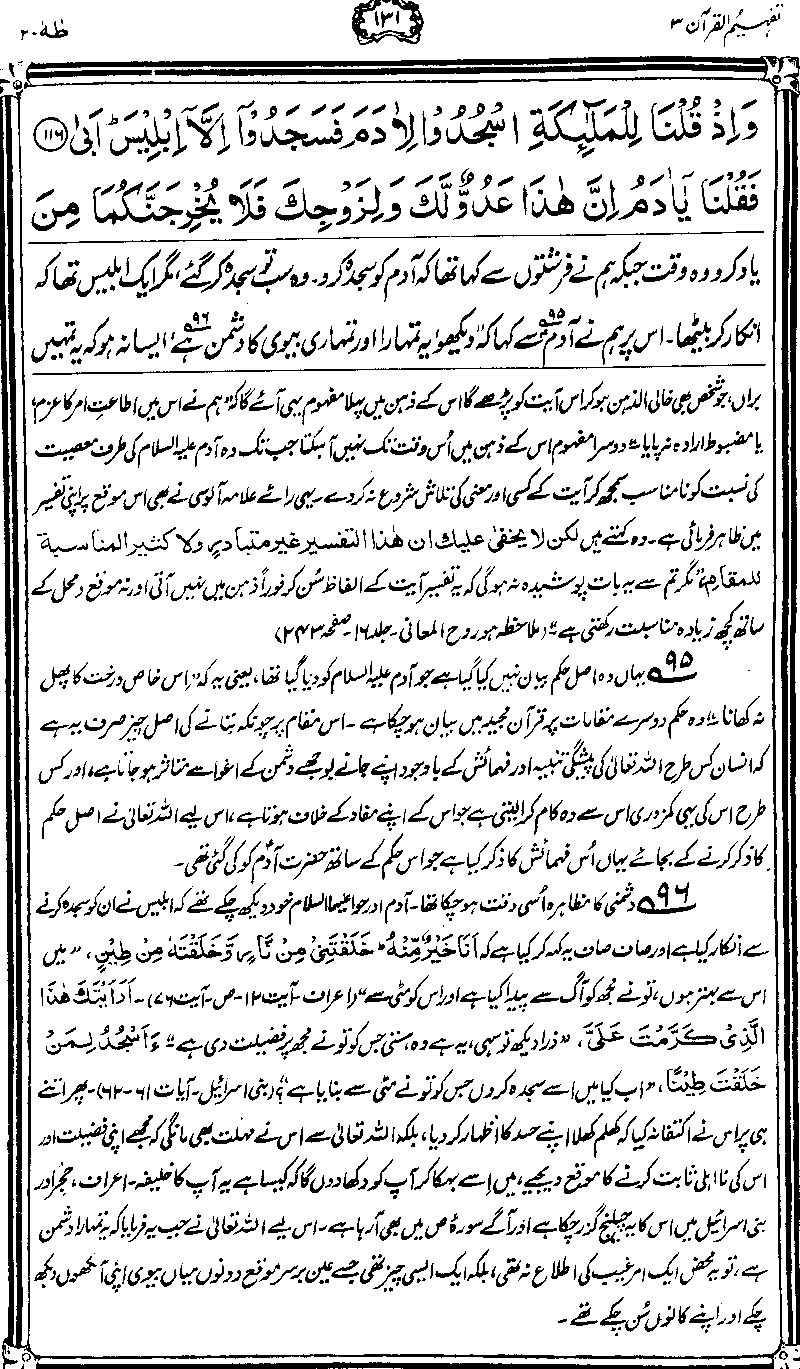 تفہیم القرآن ۳
۱۳۱
طٰہٰ ۲۰
وَاِذْ قُلْنَا لِلْمَلٰٓئِكَةِ اسْجُدُوْا لِاٰدَمَ فَسَجَدُوْٓا اِلَّآ اِبْلِيْسَ ؕ اَبٰى ﴿۱۱۶﴾
فَقُلْنَا يٰٓاٰدَمُ اِنَّ هٰذَا عَدُوٌّ لَّكَ وَلِزَوْجِكَ فَلَا يُخْرِجَنَّكُمَا مِنَ
یاد کرو وہ وقت جبکہ ہم نے فرشتوں سے کہا تھا کہ آدم کو سجدہ کرو۔ وہ سب تو سجدہ کر گئے، مگر ایک ابلیس تھا کہ
انکار کر بیٹھا۔ اس پر ہم نے آدمؑ ۹۵ سے کہا کہ ”دیکھو، یہ تمہارا اور تمہاری بیوی کا دشمن ہے ۹۶، ایسا نہ ہو کہ یہ تمہیں
براں، جو شخص بھی خالی الذہن ہو کر اس آیت کو پڑھے گا اس کے ذہن میں پہلا مفہوم یہی آئے گا کہ ”ہم نے اس میں اطاعتِ امر کا عزم،
یا مضبوط ارادہ نہ پایا“۔ دوسرا مفہوم اس کے ذہن میں اُس وقت تک نہیں آ سکتا جب تک وہ آدم علیہ السلام کی طرف معصیت
کی نسبت کو نامناسب سمجھ کر آیت کے کسی اور معنی کی تلاش شروع نہ کر دے۔ یہی رائے علامہ آلوسی نے بھی اس موقع پر اپنی تفسیر
میں ظاہر فرمائی ہے۔ وہ کہتے ہیں لکن لا یخفیٰ علیك ان هٰذا التفسیر غیر متبادر ولا کثیر المناسبة
للمقام، ”مگر تم سے یہ بات پوشیدہ نہ ہوگی کہ یہ تفسیر آیت کے الفاظ سُن کر فوراً ذہن میں نہیں آتی اور نہ موقع و محل کے
ساتھ کچھ زیادہ مناسبت رکھتی ہے“۔ (ملاحظہ ہو روح المعانی۔ جلد ۱۶۔ صفحہ ۲۴۳)
۹۵ یہاں وہ اصل حکم بیان نہیں کیا گیا ہے جو آدم علیہ السلام کو دیا گیا تھا، یعنی یہ کہ ”اِس خاص درخت کا پھل
نہ کھانا“۔ وہ حکم دوسرے مقامات پر قرآن مجید میں بیان ہو چکا ہے۔ اس مقام پر چونکہ بتانے کی اصل چیز صرف یہ ہے
کہ انسان کس طرح اللہ تعالیٰ کی پیشگی تنبیہ اور فہمائش کے باوجود اپنے جانے بوجھے دشمن کے اغوا سے متاثر ہو جاتا ہے، اور کس
طرح اس کی یہی کمزوری اس سے وہ کام کرا لیتی ہے جو اس کے اپنے مفاد کے خلاف ہوتا ہے، اس لیے اللہ تعالیٰ نے اصل حکم
کا ذکر کرنے کے بجائے یہاں اُس فہمائش کا ذکر کیا ہے جو اس حکم کے ساتھ حضرت آدمؑ کو کی گئی تھی۔
۹۶ دشمنی کا مظاہرہ اُسی وقت ہو چکا تھا۔ آدم اور حوا علیہما السلام خود دیکھ چکے تھے کہ ابلیس نے ان کو سجدہ کرنے
سے انکار کیا ہے اور صاف صاف یہ کہہ کر کیا ہے کہ اَنَا خَيْرٌ مِّنْهُ ۚ خَلَقْتَنِيْ مِنْ نَّارٍ وَّخَلَقْتَهٗ مِنْ طِيْنٍ، ”میں
اس سے بہتر ہوں، تو نے مجھ کو آگ سے پیدا کیا ہے اور اس کو مٹی سے“ (اعراف۔ آیت ۱۲۔ ص۔ آیت ۷۶)۔ اَرَاَيْتَكَ هٰذَا
الَّذِيْ كَرَّمْتَ عَلَيَّ، ”ذرا دیکھ تو سہی، یہ ہے وہ ہستی جس کو تو نے مجھ پر فضیلت دی ہے“ ءَاَسْجُدُ لِمَنْ
خَلَقْتَ طِيْنًا، ”اب کیا میں اسے سجدہ کروں جس کو تو نے مٹی سے بنایا ہے“؟ (بنی اسرائیل۔ آیات ۶۱-۶۲)۔ پھر اتنے
ہی پر اس نے اکتفا نہ کیا کہ کھلم کھلا اپنے حسد کا اظہار کر دیا، بلکہ اللہ تعالیٰ سے اس نے مہلت بھی مانگی کہ مجھے اپنی فضیلت اور
اس کی نااہلی ثابت کرنے کا موقع دیجیے، میں اِسے بہکا کر آپ کو دکھا دوں گا کہ کیسا ہے یہ آپ کا خلیفہ۔ اعراف، حجر اور
بنی اسرائیل میں اس کا یہ چیلنج گزر چکا ہے اور آگے سورۂ ص میں بھی آ رہا ہے۔ اس لیے اللہ تعالیٰ نے جب یہ فرمایا کہ یہ تمہارا دشمن
ہے، تو یہ محض ایک امرِ غیب کی اطلاع نہ تھی، بلکہ ایک ایسی چیز تھی جسے عین برسرِ موقع دونوں میاں بیوی اپنی آنکھوں دیکھ
چکے اور اپنے کانوں سُن چکے تھے۔